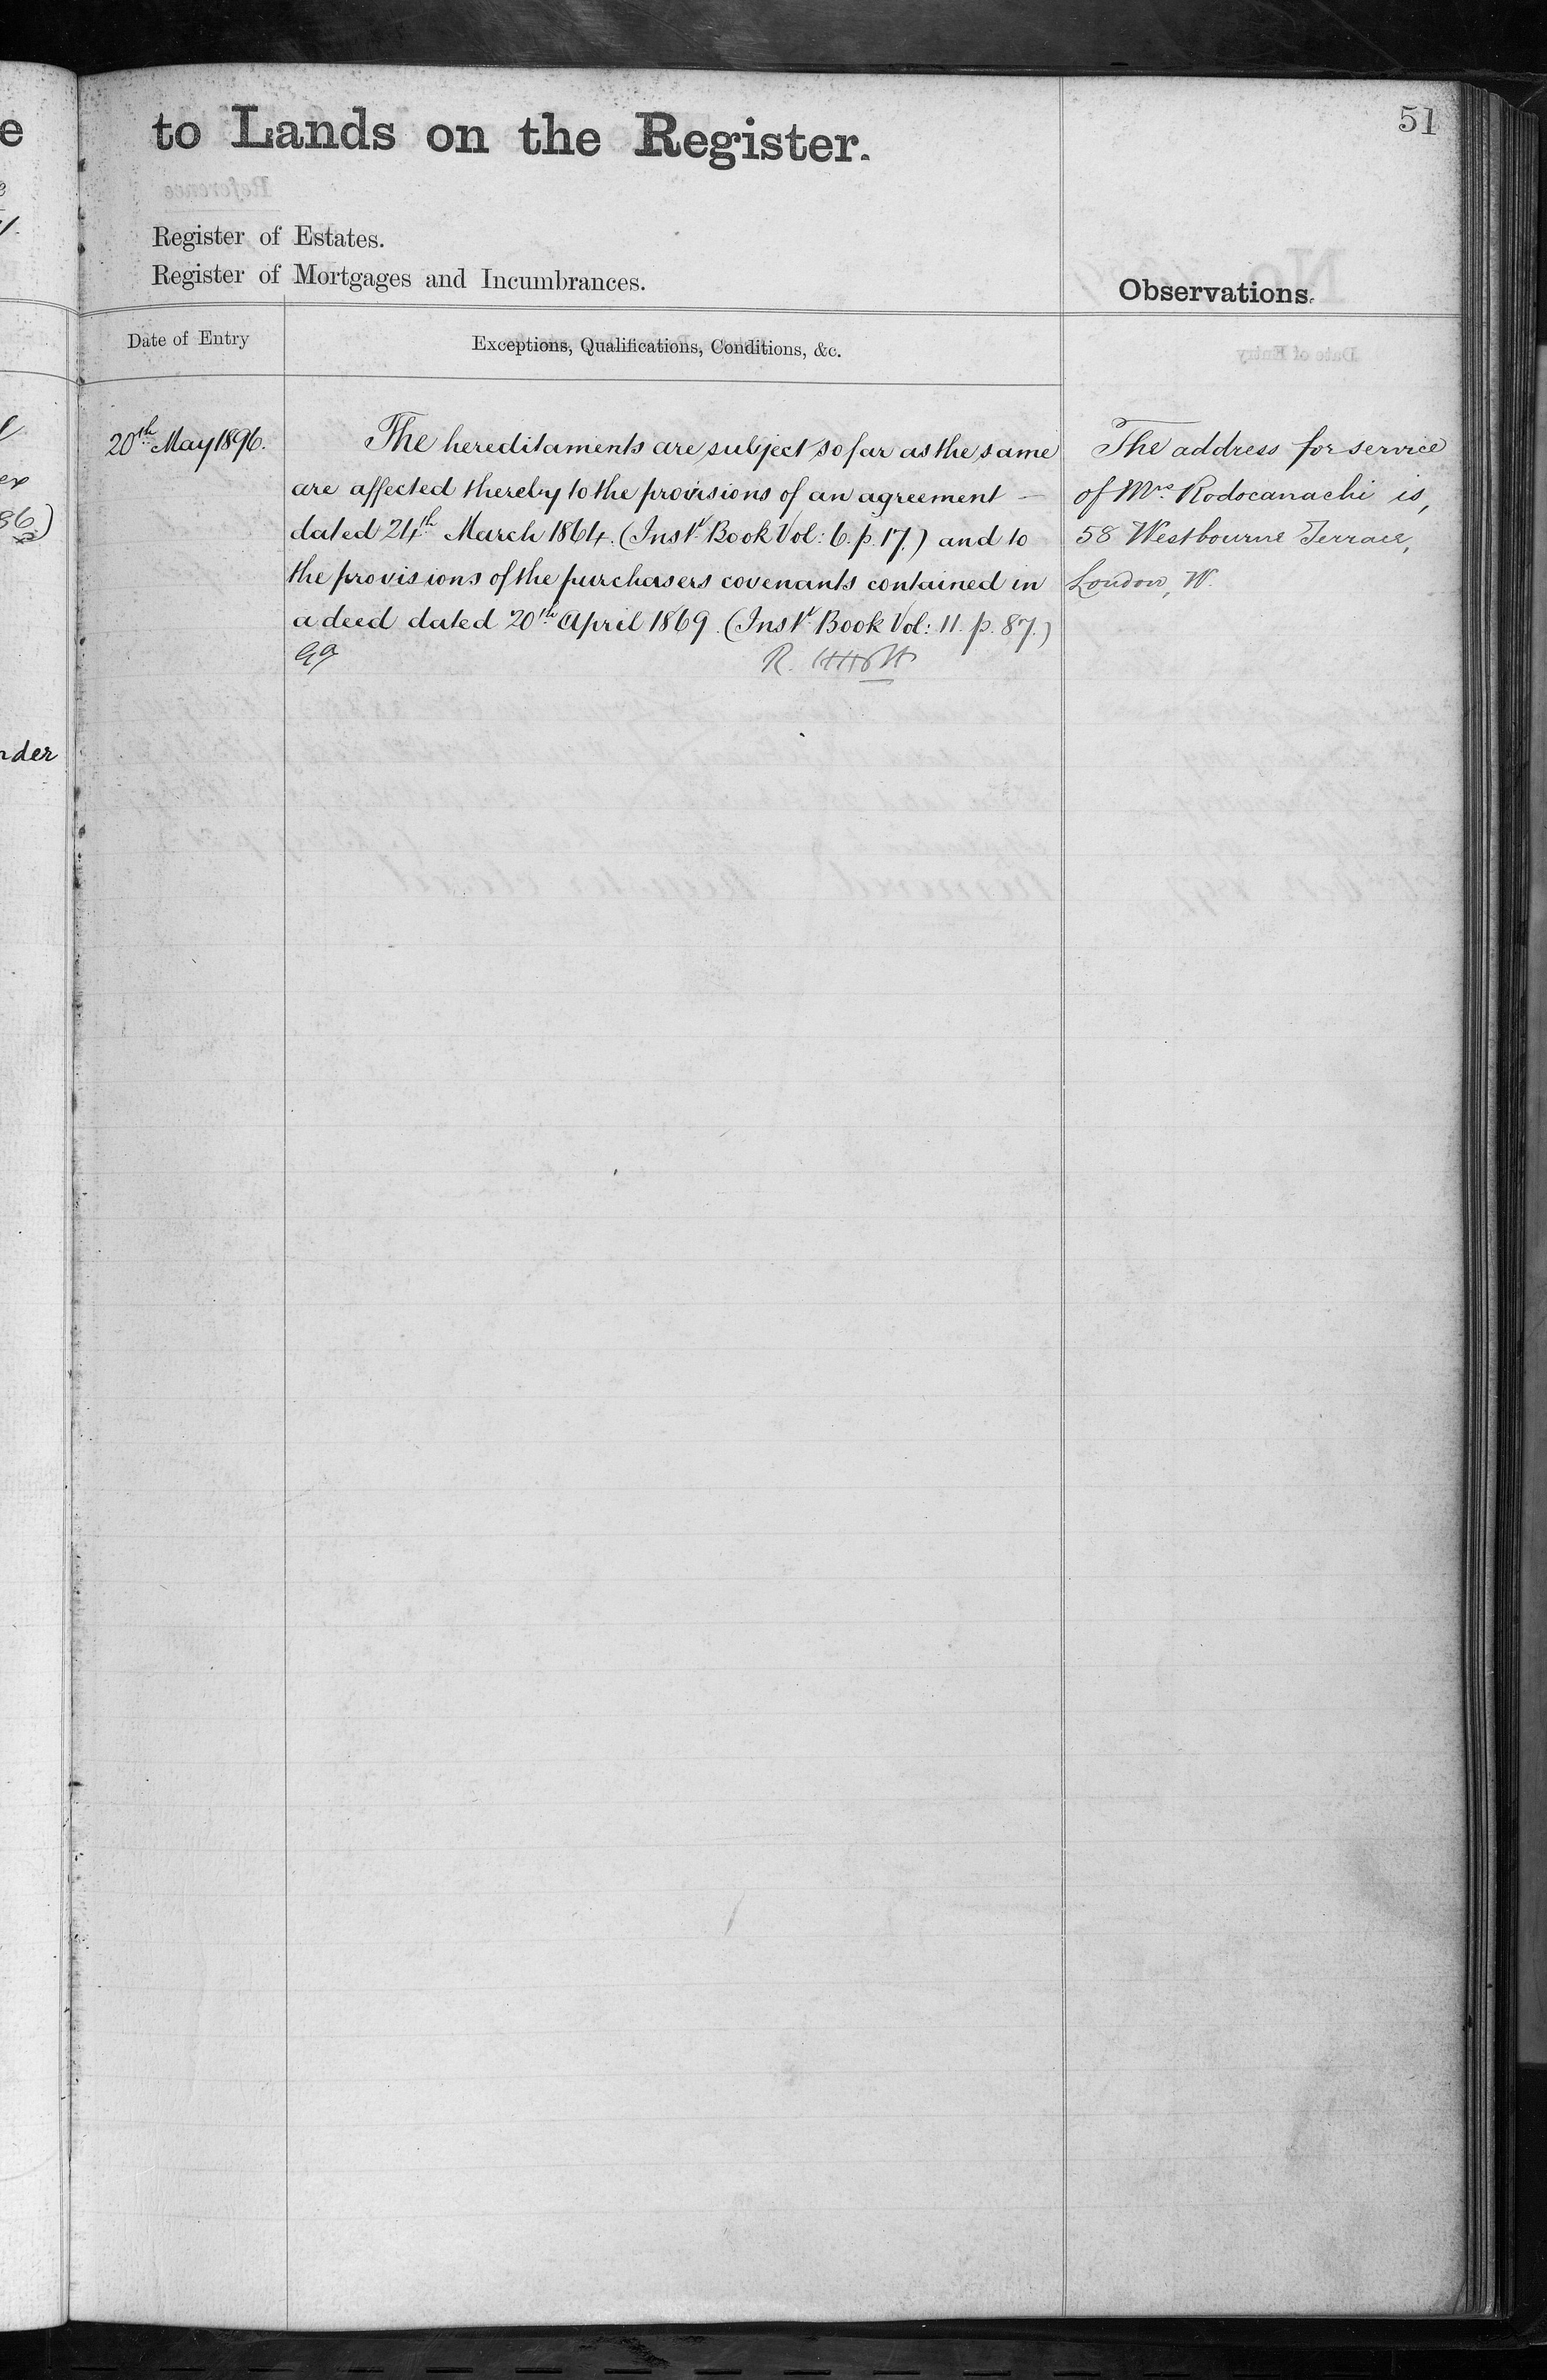 51
to Lands on the Register.
Register of Estates.
Register of Mortgages and Incumbrances.
Observations.
Date of Entry
Exceptions, Qualifications, Conditions, &c.
20th May 1896.
The hereditaments are subject so far as the same
are affected thereby to the provisions of an agreement —
dated 24th March 1864. (Inst. Book Vol: 6. p. 17.) and to
the provisions of the purchasers covenants contained in
a deed dated 20th April 1869. (Inst. Book Vol: 11. p. 87.)
R.
The address for service
of Mrs. Rodocanachi is,
58 Westbourne Terrace,
London, W.
nder